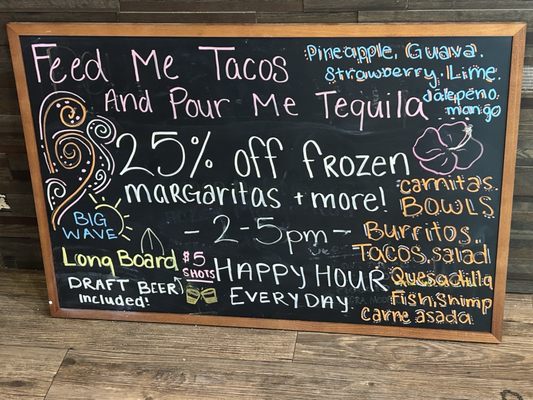 Feed Me Tacos
And Pour Me Tequila
Pineapple, Guava.
Strawberry. Lime.
Jalepeño.
mango
25% off frozen
margaritas + more!
- 2-5pm -
Happy Hour
Everyday
BIG
WAVE
Long Board
Draft Beer
Included!
$5
SHOTS
Carnitas.
Bowls
Burritos
Tacos, salad
Quesadilla
Fish, Shimp
Carne asada